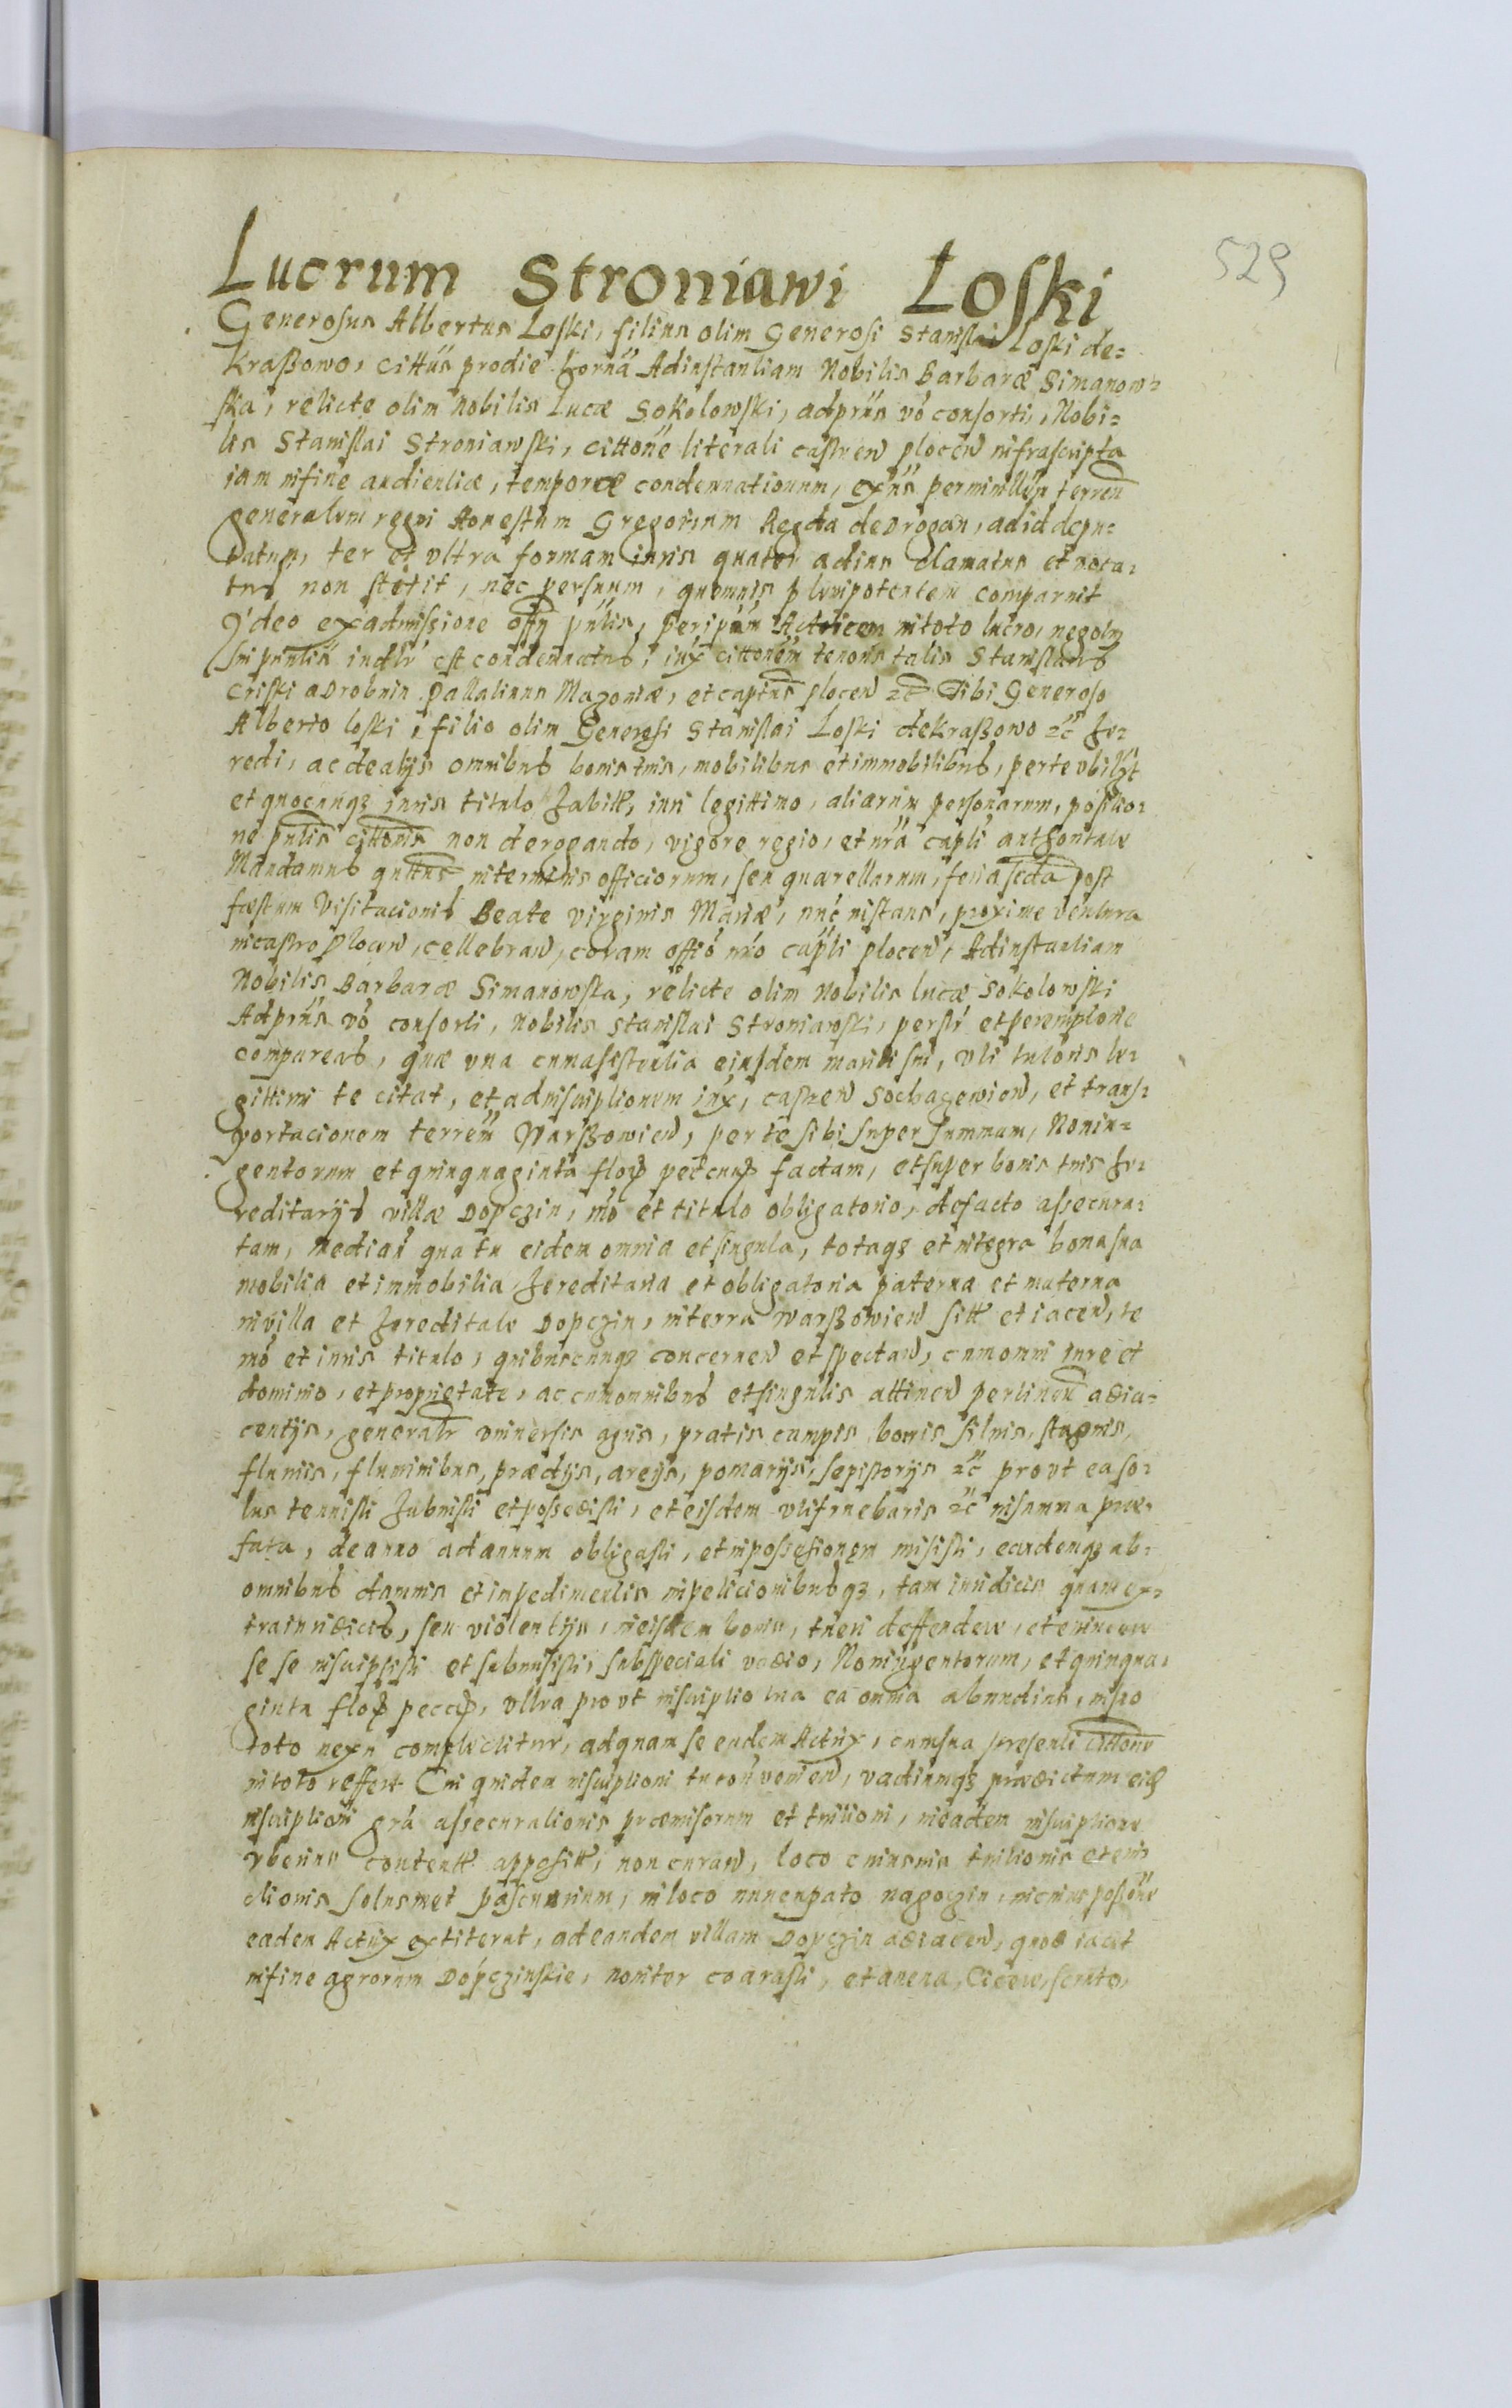 529
Lucrum Stroniawi Loski
Generosus Albertus Loski, filius olim Generosi Stanislai Loski de=
Kraßowo, cittũs prodie horna Adinstantiam Nobilis Barbaræ Simanow=
ska, relicte olim Nobilis Lucæ Sokolowski, adprñs vó consorti, Nobi=
lis Stanislai Stroniawski, cittoñe literali castren plocen infrascripta
iam infine audientiæ, temporæ condemnationum, exñs perministrum terren
generalem regni Honestum Gregorium Regda de Drogan, adid depu=
tatum, ter et vltra formam iuris quater adius clamatus et voca=
tus non stetit, nec persuum, quemuis plenipotentem comparuit
Ideo exadmissione offy pñtis, peripam Actricem intoto lucro, negoty
sui pñtis indtr est condemnatus, iux cittoném tenoris talis Stanislaus
Criski aDrobnin Pallatinus Mazoniæ, et captñs plocen zc Tibi Generoso
Alberto loski, filio olim Generosi Stanislai Loski dekraßowo zc he=
redi, ac dealijs omnibus bonis tuis, mobilibus et immobilibus, perte vbilýt
et quocunqz iuris titulo habitt, iuri legittimo, aliarum personarum, possessio=
ne pñtis cittonis non derogando, vigore regio, et nrã capli authoritate
Mandamus quttus interminis officiorum, seu quærellarum, feria scda post
fæstum Visitacionis Beate virginis Mariæ, nuć instans, proxime ventura
incastro plocen, cellebran, coram offio nro capli plocen, Adinstantiam
Nobilis Barbaræ Simanowska, relicte olim Nobilis lucæ Sokolowski
Adprñs vó consorti, Nobilis Stanislai Stroniawski, perslr et peremptorie
compareas, quæ vna cumasistentia eiusdem mariti sui, vti tutoris le=
gittimi te citat, et adinscriptionem iux, castren Sochaczewien, et trans=
portacionem terren Warßowien, per te sibi super summam, Nonin=
gentorum et quinquaginta flor pecuny factam, et super bonis tuis he=
reditarijs villæ Dopczin, mo et titulo obligatorio, defacto assecura=
tam, median qua tu eidem omnia et singula, totaqz et integra bona sua
mobilia et immobilia hereditaria et obligatoria paterna et materna
invilla et hereditate Dopczin, interra Warßowien sitt et iacen, te
mó et iuris titulo, quibuscunqz concernen et spectan, cumomni iure et
dominio, et proprietate, ac cumomnibus et singulis attinen pertinen adia=
centijs, generalr vniuersis agris, pratis campis boris siluis, stagnis,
fluuiis, fluminibus, prædijs, areis, pomarijs, sepistorijs zc provt ea so=
lus tenuisti habuisti et possedisti, et eisdem vtifruebaris zc insumma præ=
fata, deanno adannum obligasti, et inpossessionem misisti, eandemqz ab=
omnibus damnis et impedimentis inpeticionibusqz, tam iuridicis quam ex=
traiuridicis, seu violentijs, ineisdem bonis, tueri deffendere, et euincere
se se inscripsisti et submisisti, subspeciali vadio, Noningentorum, et quinqua=
ginta flor pecuny, vltra provt inscriptio tua ea omnia abundius, insuo
toto nexu complectitur, adquam se eadem Actrix, cumsua presenti cittone
intoto reffert Cui quidem inscriptioni tu conuenien, vadiumqz prædictum eidē
inscriptioni grá assecurationis præmisorum et tuitioni, ineadem inscriptione
vberius contentt appositt, non curan, loco cuiusuis tuitionis et euis
ctionis solusmet pascuuium, inloco nuncupato nagoczin, incuius possione
eadem Actrix extiterat, adeandem villam Dopczin adiacen, quod iacet
infine agrorum Dopczinskie, noniter coarasti, et auena, Cicere, semto,